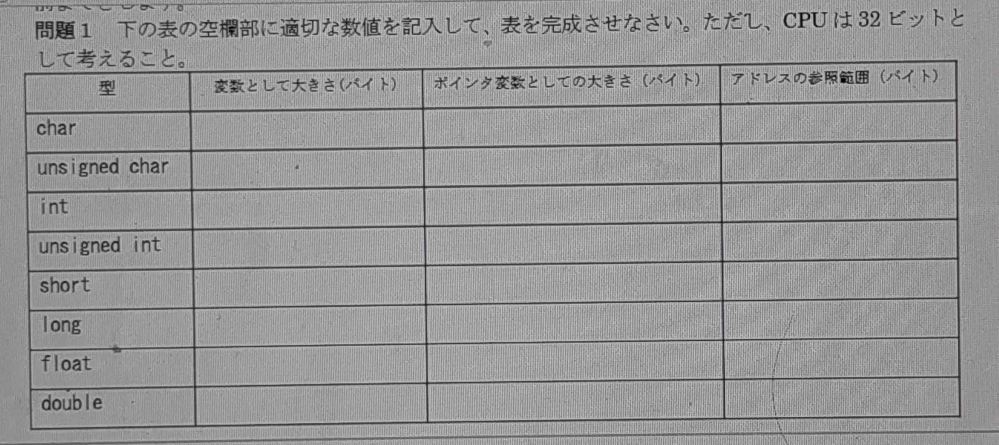 問題1 下の表の空欄部に適切な数値を記入して、表を完成させなさい。ただし、CPUは32ビットと
して考えること。
型 変数として大きさ(バイト) ポインタ変数としての大きさ(バイト) アドレスの参照範囲(バイト)
char
unsigned char
int
unsigned int
short
long
float
double